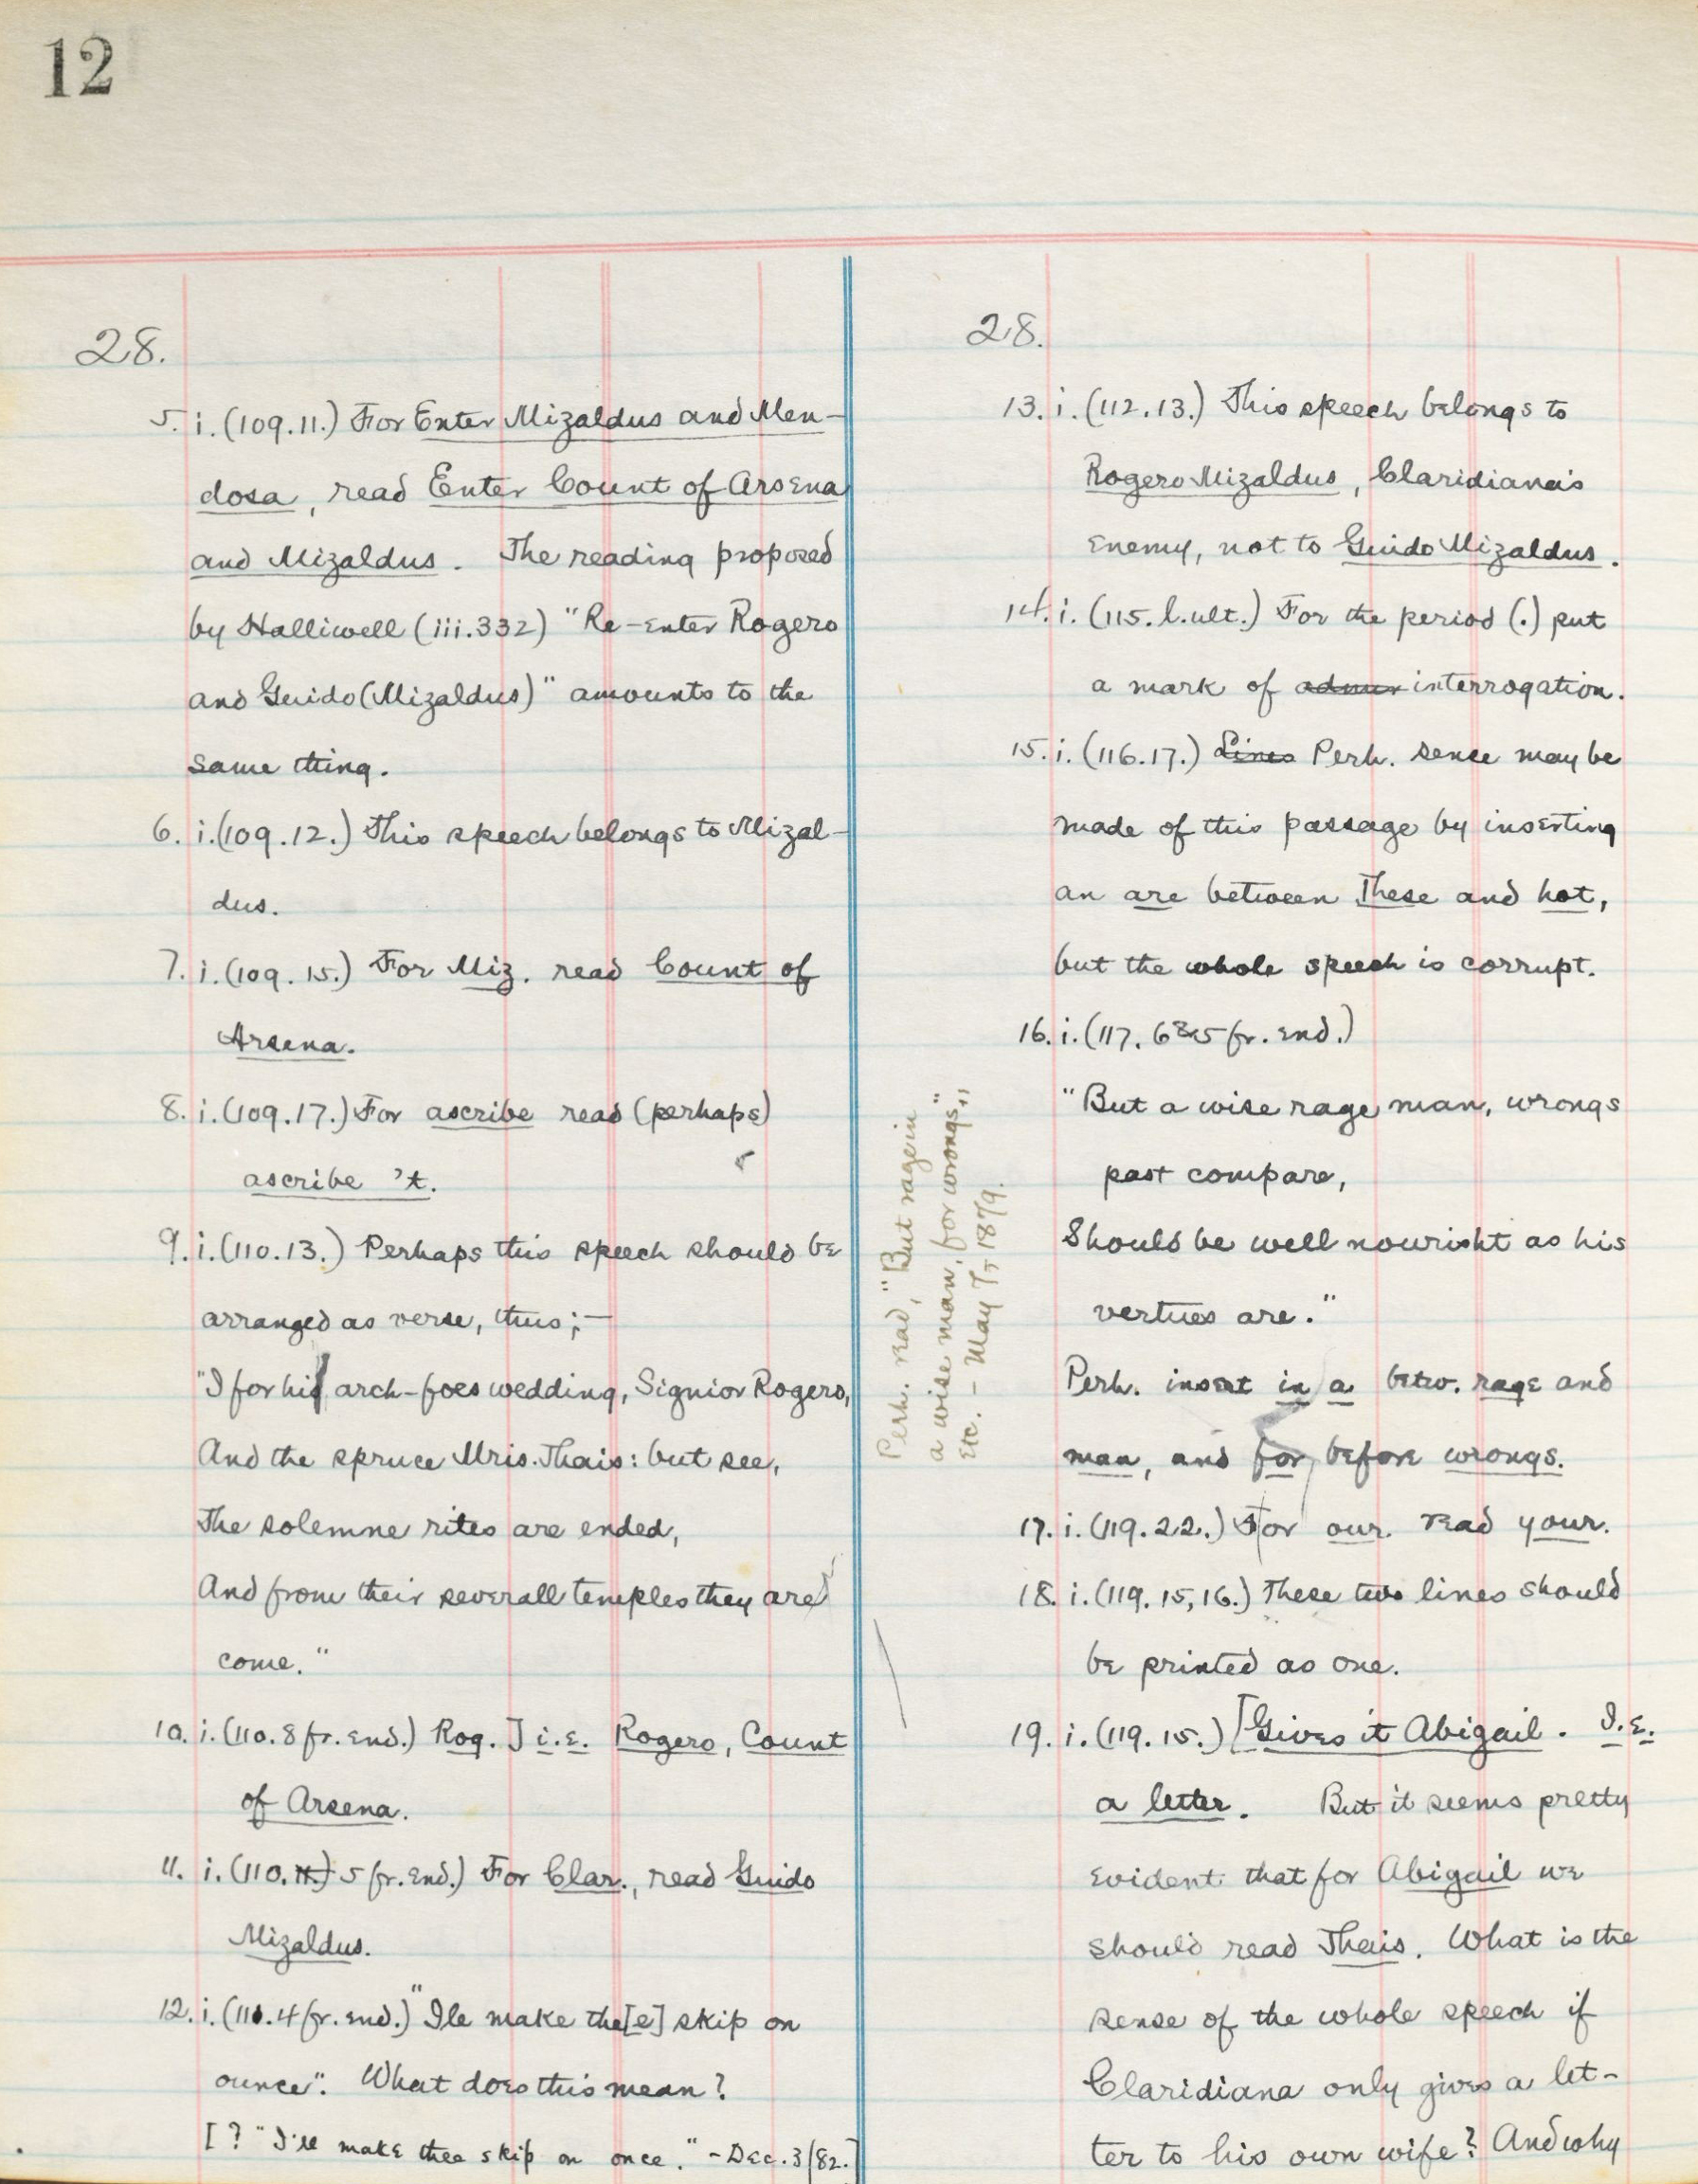 12
28.
5. i. (109.11.) For Enter Mizaldus and Men-
dosa, read Enter Count of Arsena
and Mizaldus. The reading proposed
by Halliwell (iii.332) "Re-enter Rogero
and Guido (Mizaldus)" amounts to the
same thing.
6. i. (109.12.) This speech belongs to Mizal-
dus.
7. i. (109.15.) For Miz. read Count of
Arsena.
8. i. (109.17.) For ascribe read (perhaps)
ascribe 't.
9. i. (110.13.) Perhaps this speech should be
arranged as verse, thus;—
"I for his arch-foes wedding, Signior Rogero,
And the spruce Mris. Thais: but see,
The solemne rites are ended,
And from their severall temples they are
come."
10. i. (110.8 fr. end.) Rog.] i.e. Rogero, Count
of Arsena.
11. i. (110.11.) 5 fr. end.) For Clar., read Guido
Mizaldus.
12. i. (110.4 fr. end.) "Ile make the[e] skip on
ounce". What does this mean?
[? "I'll make thee skip on once." - Dec. 3/82.]
28.
13. i. (112.13.) This speech belongs to
Rogero Mizaldus, Claridiana's
enemy, not to Guido Mizaldus.
14. i. (115. l. ult.) For the period (.) put
a mark of admir interrogation.
15. i. (116.17.) Lines Perh. sense may be
made of this passage by inserting
an are between These and hot,
but the whole speech is corrupt.
16. i. (117. 6&5 fr. end.)
"But a wise rage man, wrongs
past compare,
Should be well nourisht as his
vertues are."
Perh. insert in a betw. rage and
man, and for before wrongs.
Perh. read, "But rage in
a wise man, for wrongs",
etc. - May 7, 1879.
17. i. (119.22.) For our. read your.
18. i. (119.15,16.) These two lines should
be printed as one.
19. i. (119.15.) [Gives it Abigail. I.E.
a letter. But it seems pretty
evident that for Abigail we
should read Thais. What is the
sense of the whole speech if
Claridiana only gives a let-
ter to his own wife? And why